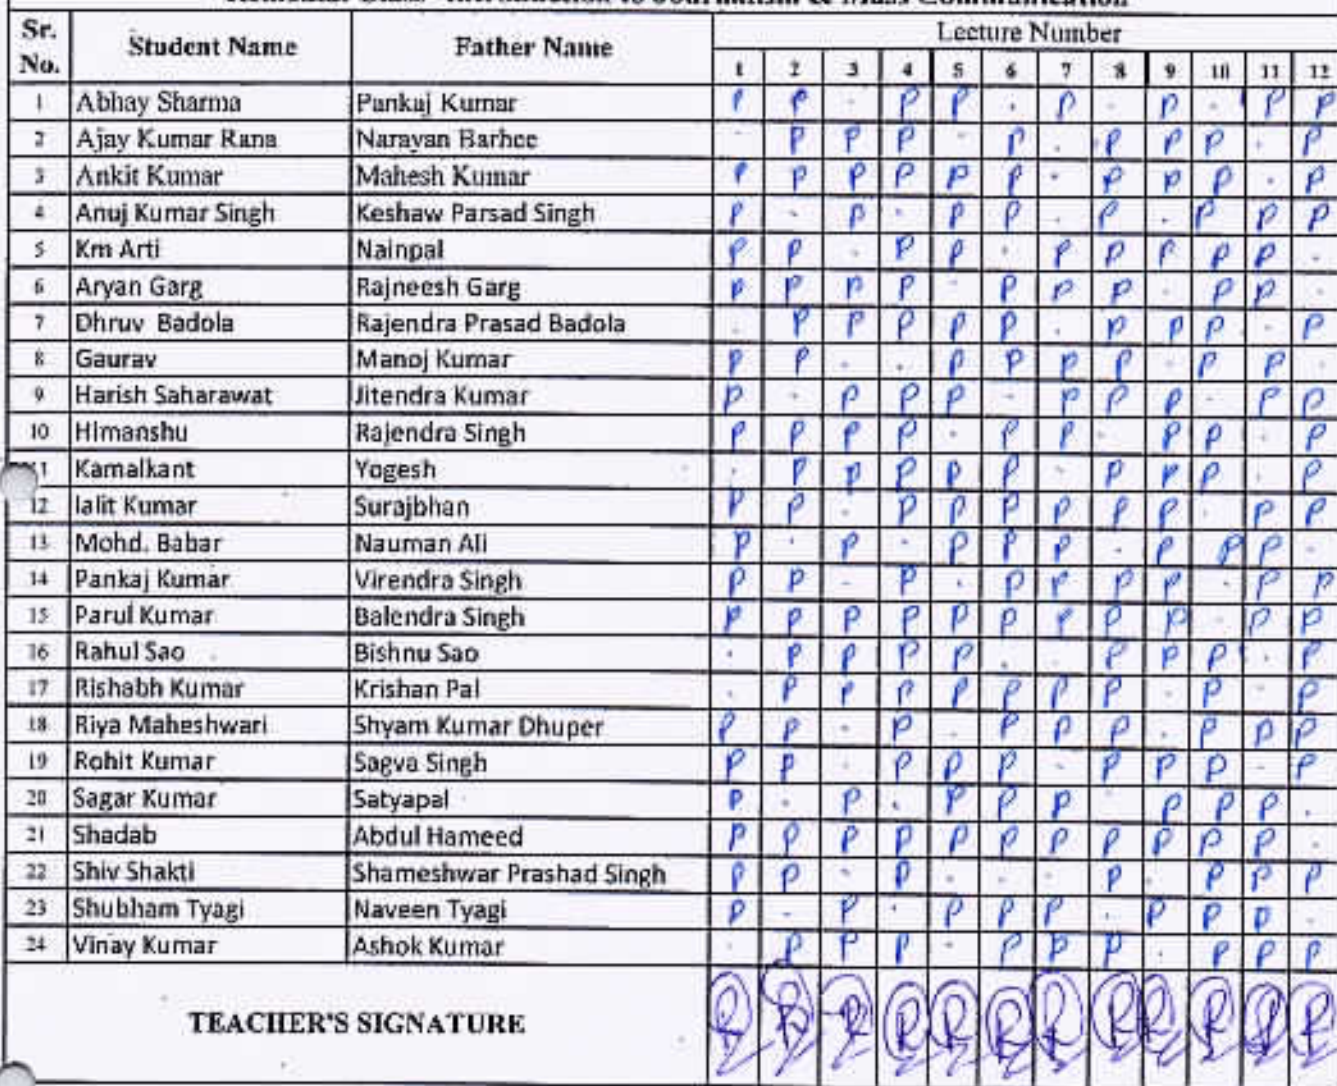 Remedial Class- Introduction to Journalism & Mass Communication
Sr. No. Student Name Father Name Lecture Number
1 2 3 4 5 6 7 8 9 10 11 12
1 Abhay Sharma Pankaj Kumar P P . P P . P . P . P P
2 Ajay Kumar Rana Narayan Barhee . P P P . P . P P P . P
3 Ankit Kumar Mahesh Kumar P P P P P P . P P P . P
4 Anuj Kumar Singh Keshaw Parsad Singh P . P . P P . P . P P P
5 Km Arti Nainpal P P . P P . P P P P P .
6 Aryan Garg Rajneesh Garg P P P P . P P P . P P .
7 Dhruv Badola Rajendra Prasad Badola . P P P P P . P P P . P
8 Gaurav Manoj Kumar P P . . P P P P . P P .
9 Harish Saharawat Jitendra Kumar P . P P P . P P P . P P
10 Himanshu Rajendra Singh P P P P . P P . P P . P
11 Kamalkant Yogesh . P P P P P . P P P . P
12 lalit Kumar Surajbhan P P . P P P P P P . P P
13 Mohd. Babar Nauman Ali P . P . P P P . P P P .
14 Pankaj Kumar Virendra Singh P P . P . P P P P . P P
15 Parul Kumar Balendra Singh P P P P P P P P P . P P
16 Rahul Sao Bishnu Sao . P P P P . . P P P . P
17 Rishabh Kumar Krishan Pal . P P P P P P P . P . P
18 Riya Maheshwari Shyam Kumar Dhuper P P . P . P P P . P P P
19 Rohit Kumar Sagva Singh P P . P P P . P P P . P
20 Sagar Kumar Satyapal P . P . P P P . P P P .
21 Shadab Abdul Hameed P P P P P P P P P P P .
22 Shiv Shakti Shameshwar Prashad Singh P P . P . . . P . P P P
23 Shubham Tyagi Naveen Tyagi P . P . P P P . P P P .
24 Vinay Kumar Ashok Kumar . P P P . P P P . P P P
TEACHER'S SIGNATURE